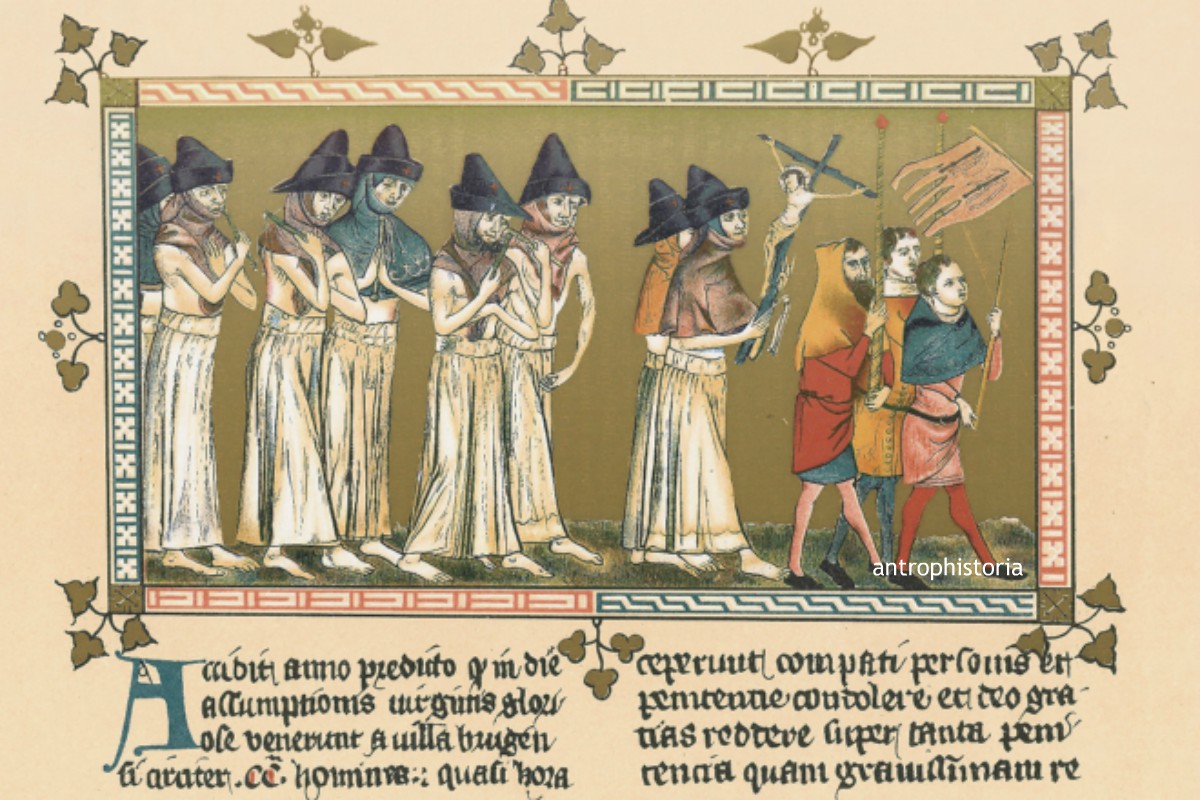 antrophistoria
Accidit anno predicto q in die
assumptionis uirginis glori
ose venerunt a uilla brugen
si circiter .cc. homines: quasi hora
ceperunt compati personis et
penitentie condolere et deo gra-
tias reddere super tanta peni
tencia quam grauissimam re